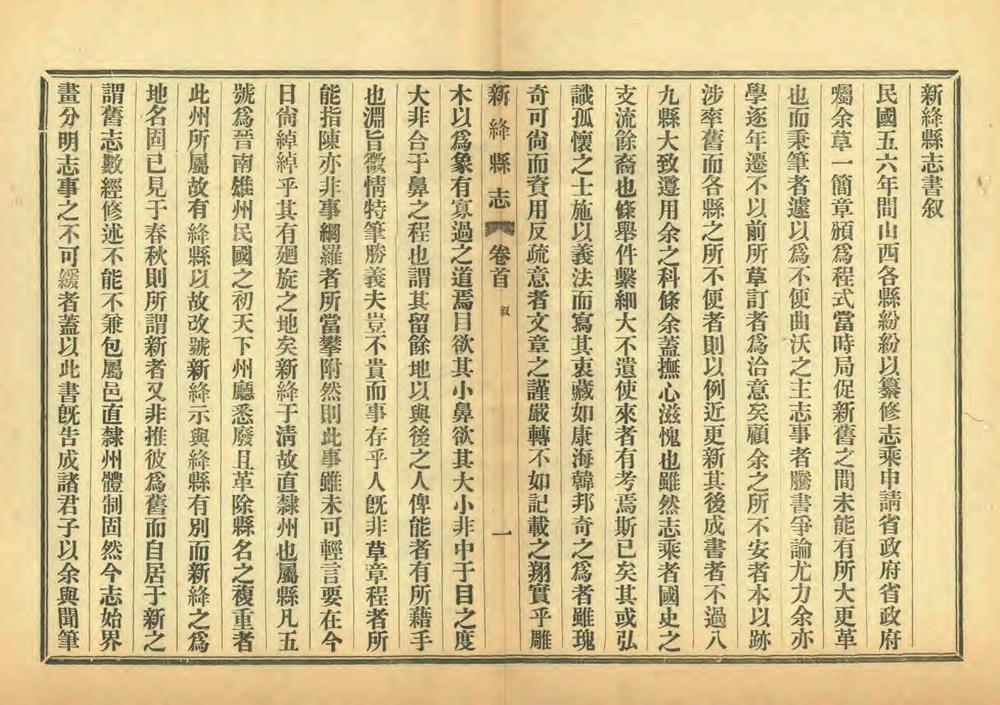 新絳縣志書叙
民國五六年間山西各縣紛紛以纂修志乘申請省政府省政府
囑余草一簡章頒爲程式當時局促新舊之間未能有所大更革
也而秉筆者遽以爲不便曲沃之主志事者騰書爭論尤力余亦
學逐年遷不以前所草訂者爲洽意矣顧余之所不安者本以跡
涉率舊而各縣之所不便者則以例近更新其後成書者不過八
九縣大致遵用余之科條余蓋撫心滋愧也雖然志乘者國史之
支流餘裔也條舉件繫細大不遺使來者有考焉斯已矣其或弘
識孤懷之士施以義法而寫其衷藏如康海韓邦奇之爲者雖瑰
奇可尙而資用反疏意者文章之謹嚴轉不如記載之翔實乎雕
新絳縣志 卷首 叙 一
木以爲象有寡過之道焉目欲其小鼻欲其大小非中于目之度
大非合于鼻之程也謂其留餘地以與後之人俾能者有所藉手
也淵旨微情特筆勝義夫豈不貴而事存乎人旣非草章程者所
能指陳亦非事網羅者所當攀附然則此事雖未可輕言要在今
日尙綽綽乎其有廻旋之地矣新絳于淸故直隸州也屬縣凡五
號爲晉南雄州民國之初天下州廳悉廢且革除縣名之複重者
此州所屬故有絳縣以故改號新絳示與絳縣有別而新絳之爲
地名固已見于春秋則所謂新者又非推彼爲舊而自居于新之
謂舊志數經修述不能不兼包屬邑直隸州體制固然今志始界
畫分明志事之不可緩者蓋以此書旣吿成諸君子以余與聞筆